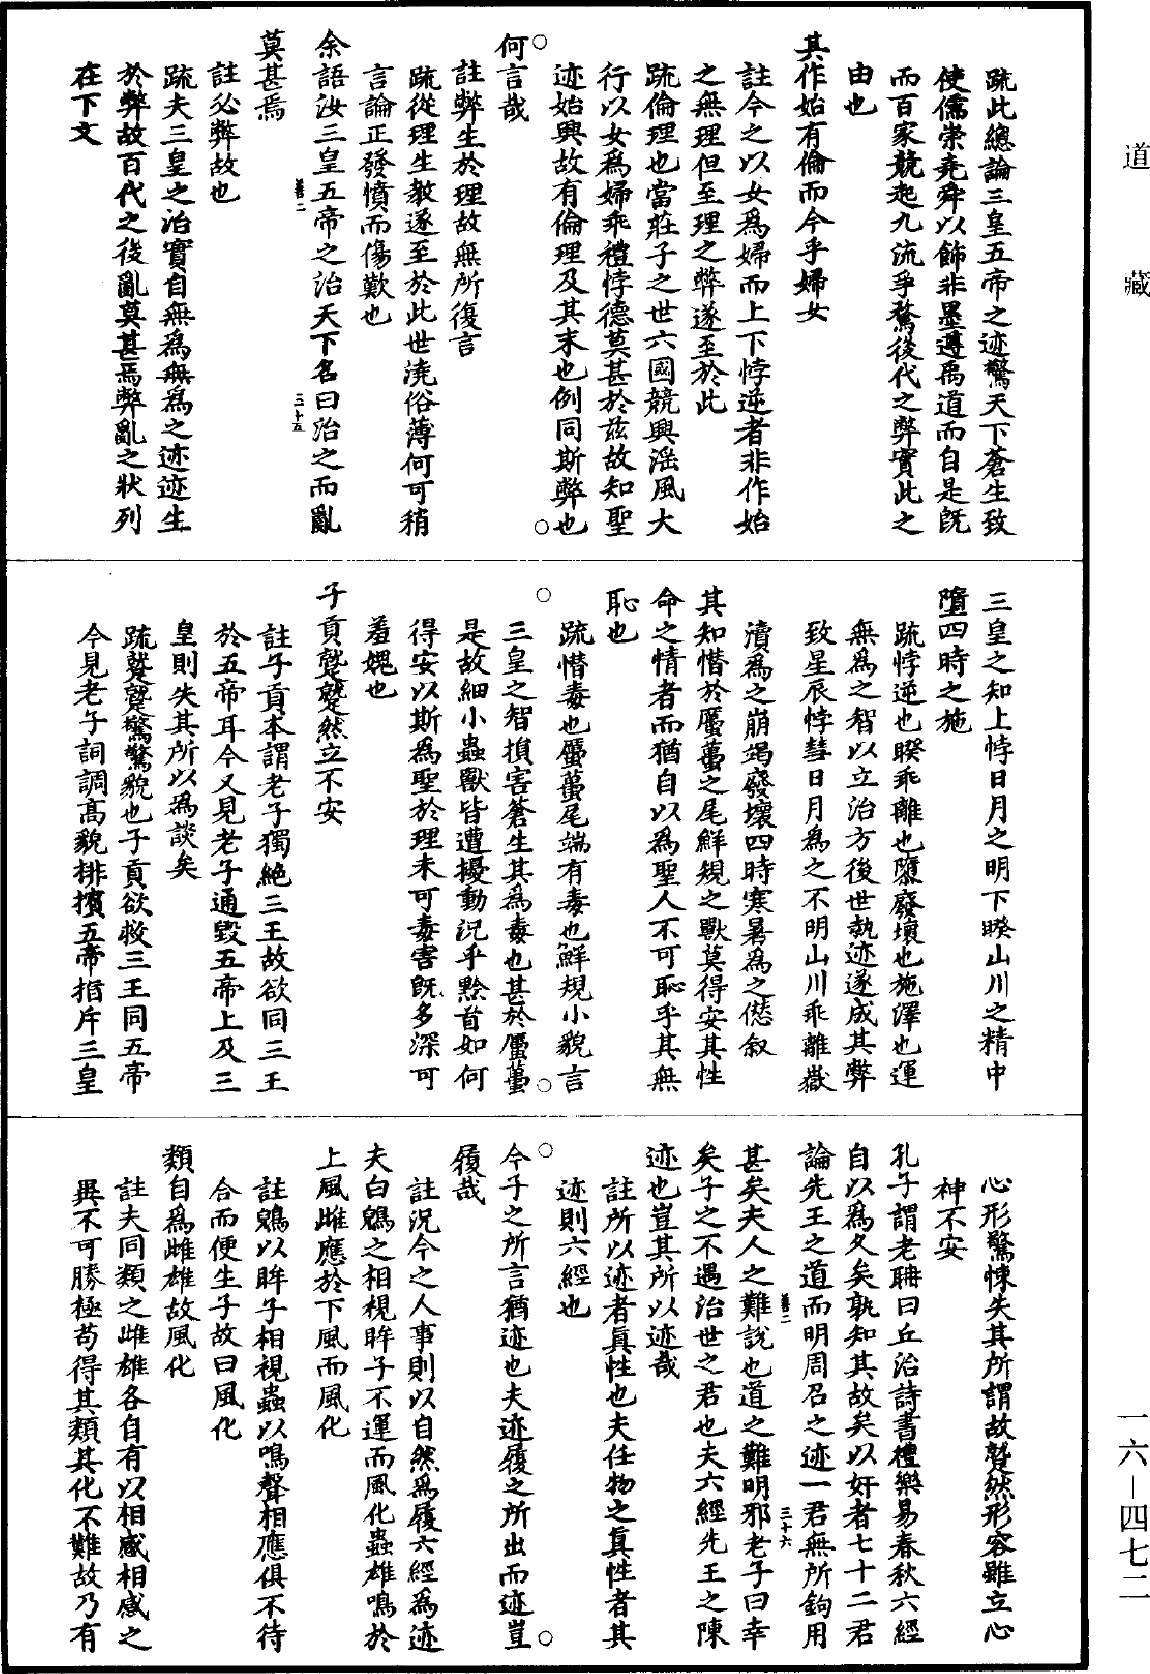 道藏
疏此總論三皇五帝之迹驚天下蒼生致
使儒崇堯舜以飾非墨遵禹道而自是既
而百家競起九流爭騖後代之弊實此之
由也
其作始有倫而今乎婦女
註今之以女為婦而上下悖逆者非作始
之無理但至理之弊遂至於此
疏倫理也當莊子之世六國競興淫風大
行以女為婦乖禮悖德莫甚於茲故知聖
迹始興故有倫理及其末也例同斯弊也
何言哉
註弊生於理故無所復言
疏從理生教遂至於此世澆俗薄何可稍
言論正發憤而傷歎也
余語汝三皇五帝之治天下名曰治之而亂
三十五
莫甚焉
註必弊故也
疏夫三皇之治實自無為無為之迹迹生
於弊故百代之後亂莫甚焉弊亂之狀列
在下文
三皇之知上悖日月之明下睽山川之精中
墮四時之施
疏悖逆也睽乖離也隳廢壞也施澤也運
無為之智以立治方後世執迹遂成其弊
致星辰悖彗日月為之不明山川乖離嶽
瀆為之崩竭廢壞四時寒暑為之愆敘
其知憯於蠆蠆之尾鮮規之獸莫得安其性
命之情者而猶自以為聖人不可恥乎其無
恥也
疏憯毒也蠆蠆尾端有毒也鮮規小貌言
三皇之智損害蒼生其為毒也甚於蠆蠆
是故細小蟲獸皆遭擾動況乎黔首如何
得安以斯為聖於理未可毒害既多深可
羞媿也
子貢蹵蹵然立不安
註子貢本謂老子獨絶三王故欲同三王
於五帝耳今又見老子通毀五帝上及三
皇則失其所以為談矣
疏蹵蹵驚貌也子貢欲救三王同五帝
今見老子詞調高貌排擯五帝指斥三皇
心形驚悚失其所謂故蹵然形容雖立心
神不安
孔子謂老聃曰丘治詩書禮樂易春秋六經
自以為久矣孰知其故矣以奸者七十二君
論先王之道而明周召之迹一君無所鉤用
三十六
甚矣夫人之難說也道之難明邪老子曰幸
矣子之不遇治世之君也夫六經先王之陳
迹也豈其所以迹哉
註所以迹者真性也夫任物之真性者其
迹則六經也
今子之所言猶迹也夫迹履之所出而迹豈
履哉
註況今之人事則以自然為履六經為迹
夫白鶂之相視眸子不運而風化蟲雄鳴於
上風雌應於下風而風化
註鶂以眸子相視蟲以鳴聲相應俱不待
合而便生子故曰風化
類自為雌雄故風化
註夫同類之雌雄各自有以相感相感之
異不可勝極苟得其類其化不難故乃有
一六—四七二